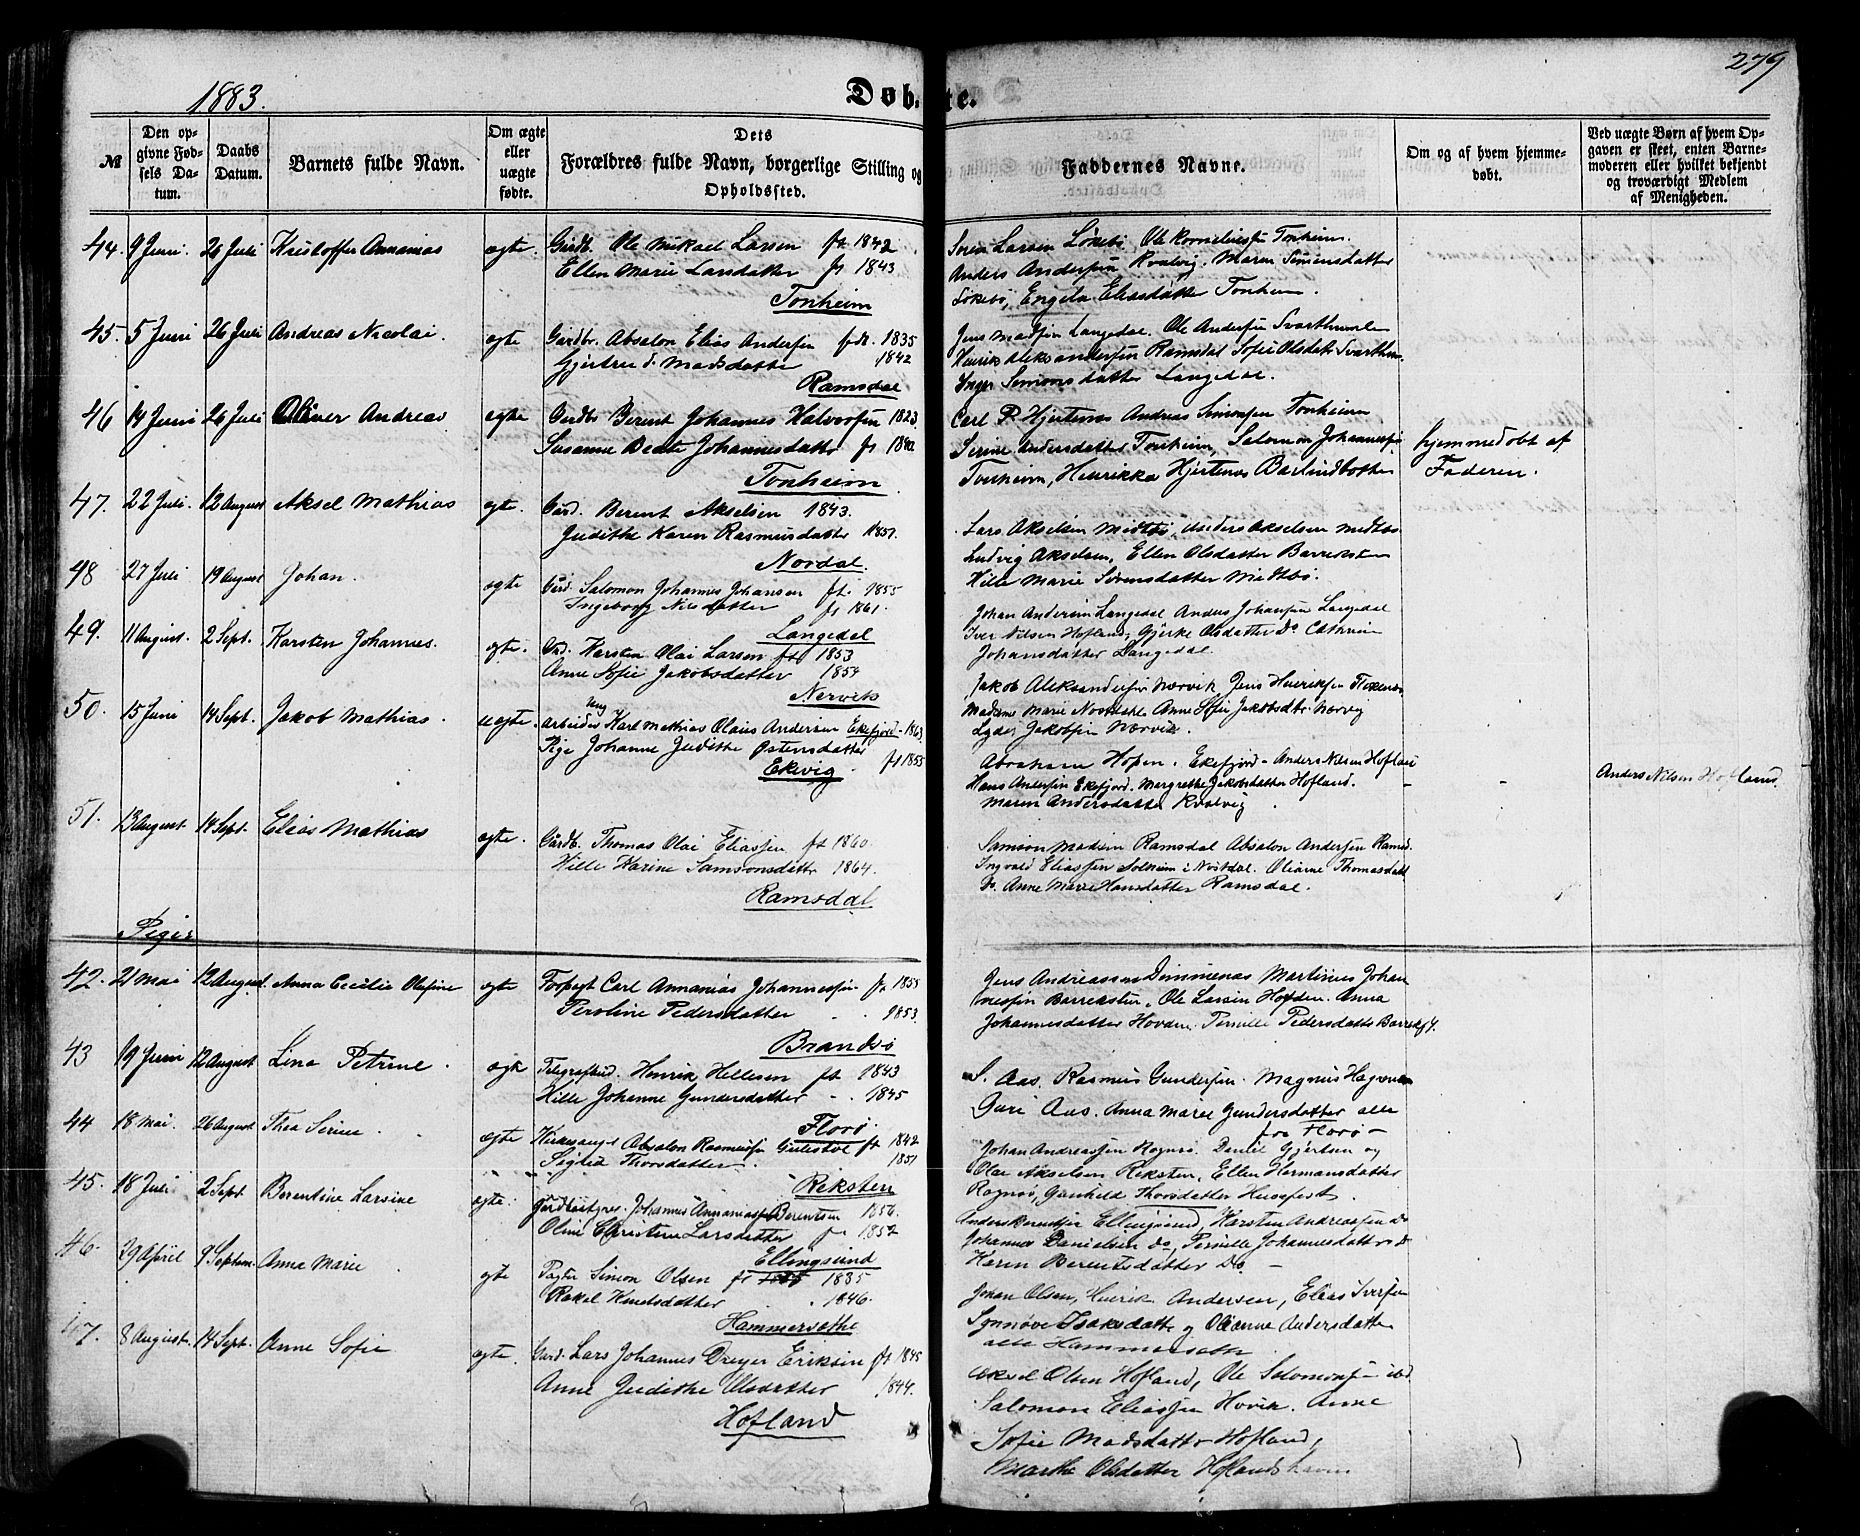 279
1883.
Døbte.
№
Den opgivne Fødsels Datum.
Daabs Datum.
Barnets fulde Navn.
Om ægte eller uægte fødte.
Dets Forældres fulde Navn, borgerlige Stilling og Opholdssted.
Faddernes Navne.
Om og af hvem hjemmedøbt.
Ved uægte Børn af hvem Opgaven er skeet, enten Barnemoderen eller hvilket bekjendt og troværdigt Medlem af Menigheden.
44 9 Juni. 26 Juli Kristoffer Annanias ægte. Gårdb. Ole Mikael Larsen ft 1842
Ellen Marie Larsdatter ft 1843
Tonheim
Søren Larsen Løkebø, Ole Korneliussen Tonheim
Anders Andersen Kvalvig. Maren Simensdatter
Løkebø, Engela Eliasdatter Tonheim.
45. 5 Juni 26 Juli Andreas Nicolai. ægte Gårdbr. Absalon Elias Andersen født. 1835
Gjertrud Madsdatter 1842
Ramsdal
Jens Madsen Langedal. Ole Andersen Svarthumle
Henrik Aleksandersen Ramsdal Sofie Olsdatter Svarthum.
Inger Simonsdatter Langedal.
46 14 Juni 26 Juli Oliver Andreas ægte Gårdb Berent Johannes Halvorsen 1823
Susanne Beate Johannesdatter ft 1842
Tonheim
Carl P. Hjertenæs Andreas Simonsen Tonheim
Serine Andersdatter Tonheim, Salomon Johannessen
Tonheim, Henrikka Hjertenæs Barlindbotten
hjemmedøbt af
Faderen.
47. 22 Juli. 12 August Aksel Mathias ægte. Gård. Berent Akselsen 1843.
Judithe Karen Rasmusdatter 1851.
Nordal.
Lars Akselsen Midtbø, Anders Akselsen Midtbø
Ludvig Akselsen, Ellen Olsdatter Barreksten
Hille Marie Sørensdatter Midtbø.
48 27 Juli 19 August Johan. ægte Gård. Salomon Johannes Johansen ft. 1855
Ingeborg Nilsdatter ft 1861.
Langedal
Johan Andersen Langedal Anders Johansen Langedal
Iver Nilsen Hofland, Gjerke Olsdatter Do Cathrine
Johansdatter Langedal.
49. 11 August. 2 Sept. Karsten Johannes. ægte. Grd. Karsten Olai Larsen ft 1853
Anne Sofie Jakobsdatter 1854
Nervik
Jakob Aleksandersen Nærvik Jens Henriksen
Madame Marie Nostdahl Anne Sofie Jakobsdtr. Nærvig
Lyder Jakobsen Nærvik.
50. 15 Juni 14 Sept. Jakob Mathias. uægte. Ung
Arbeider Karl Mathias Olaus Andersen Ekefjord - 1863
Pige Johanne Judithe Østensdatter ft 1855
Ekevig
Abraham Hopen. Ekefjord - Anders Nilsen Hofland
Hans Andersen Ekefjord. Margrethe Jakobsdatter Hofland.
Maren Andersdatter Kvalvig
- -
Anders Nilsen Hofland.
51. 13 August. 14 Sept. Elias Mathias ægte. Gårdb. Thomas Olai Eliassen ft 1860
Hille Karine Samsonsdatter 1864.
Ramsdal
Samson Madsen Ramsdal Absalon Andersen Ramsd.
Ingvald Eliassen Solheim i Nostdal. Oliane Thomasdatt
Do. Anne Marie Hansdatter Ramsdal.
Piger
42. 21 Mai 12 August. Anna Cecilie Olufine ægte Forpagt Carl Annanias Johannessen ft 1855
Peroline Pedersdatter 1853.
Brandsø
Jens Andreassen Dimmenæs Martinus Johan
nessen Barreksten, Ole Larsen Hovden. Anna
Johannesdatter Hovden. Pernille Pedersdatter
43 19 Juni 12 August Lina Petrine. ægte Telegrafbud. Henrik Hellesen ft 1843
Hille Johanne Gundersdatter 1845
Florø.
S. Aas. Rasmus Gundersen. Magnus
Guri Aas. Anna Marie Gundersdatter alle
fra Florø -
44 18 Mai. 26 August Thea Serine. ægte Kirkesanger Absalon Rasmussen ft 1842
Sigrid Thorsdatter. 1851
Reksten
Johan Andreassen Rognø. Daniel Gjertsen og
Olai Akselsen Reksten, Ellen Hermansdatter
Rognø, Gunhild Thorsdatter Husefest.
45. 18 Juli 2 Sept Berentine Larsine ægte. Johannes Annaniassen Berentsen 1856.
Oline Christine Larsdatter ft 1852
Ellingsund
Anders Berentsen Ellingsund, Karsten Andreassen Do
Johannes Danielsen Do, Pernille Johannesdatter Do
Karen Berentsdatter Do. -
46. 29 April 9 Septem. Anna Marie ægte Pagter Simon Olsen ft 1835
Rakel Knudsdatter 1846.
Hammersæthe
Johan Olsen, Henrik Andersen, Elias Iversen
Synnøve Isaksdatter og Oleanne Andersdatter
alle Hammersæthe
47. 8 August. 14 Sept. Anne Sofie ægte. Gård. Lars Johannes Dreyer Eriksen ft 1845
Anne Judithe Olsdatter 1844.
Hofland
Aksel Olsen Hofland, Ole Salomonsen ibd.
Salomon Eliassen Hovik. Anne
Sofie Madsdatter Hofland,
Marthe Olsdatter Hoflandshavn